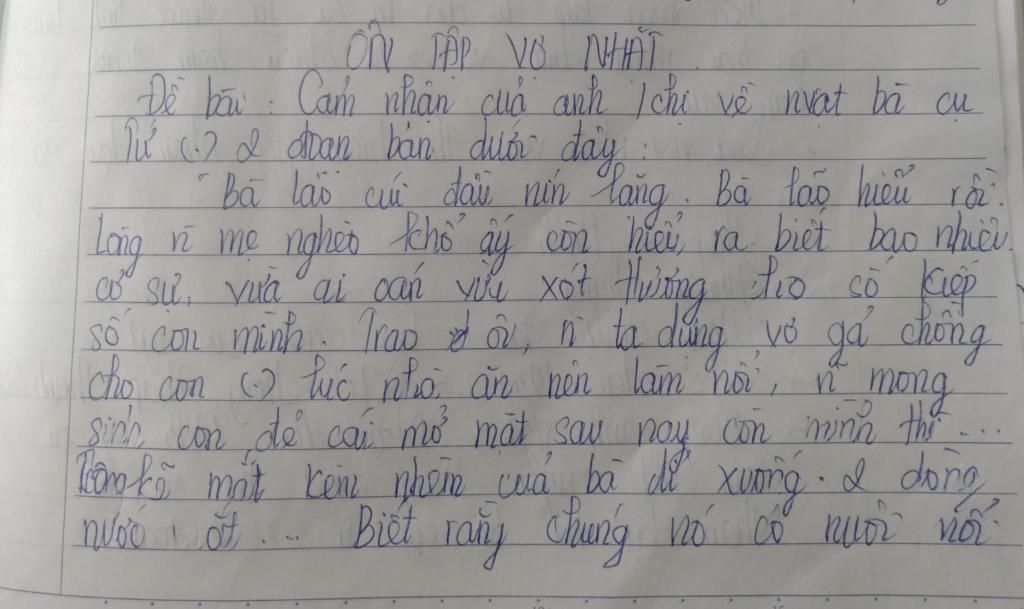 ÔN TẬP VỢ NHẶT
Đề bài : Cảm nhận của anh / chị về nvật bà cụ
Tứ (.) 2 đoạn bản dưới đây :
"Bà lão cúi đầu nín lặng. Bà lão hiểu rồi.
Lòng n mẹ nghèo khổ ấy còn hiểu ra biết bao nhiêu
cơ sự, vừa ai oán vừa xót thương cho số kiếp
số con mình. Trao ôi, n ta dựng vợ gả chồng
cho con (.) lúc nhà ăn nên làm nổi, n mong
sinh con đẻ cái mở mặt sau này còn mình thì ...
Trong kẽ mắt kèm nhèm của bà rỉ xuống 2 dòng
nước ... Biết rằng chúng nó có nuôi nổi